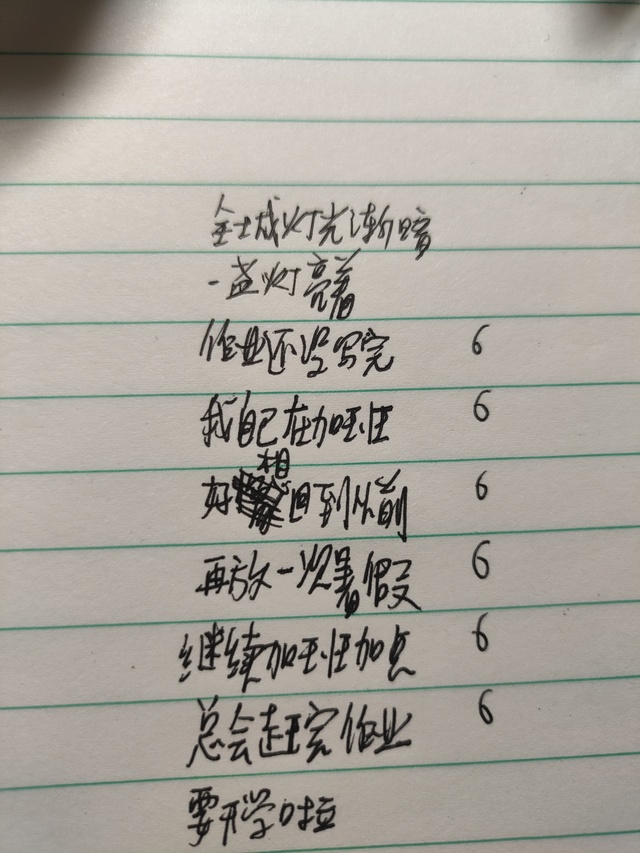 全城灯光渐暗
一盏灯亮着
作业还没写完 6
我自己在加班 6
好想回到从前 6
再放一次暑假 6
继续加班加点 6
总会赶完作业 6
要开学啦